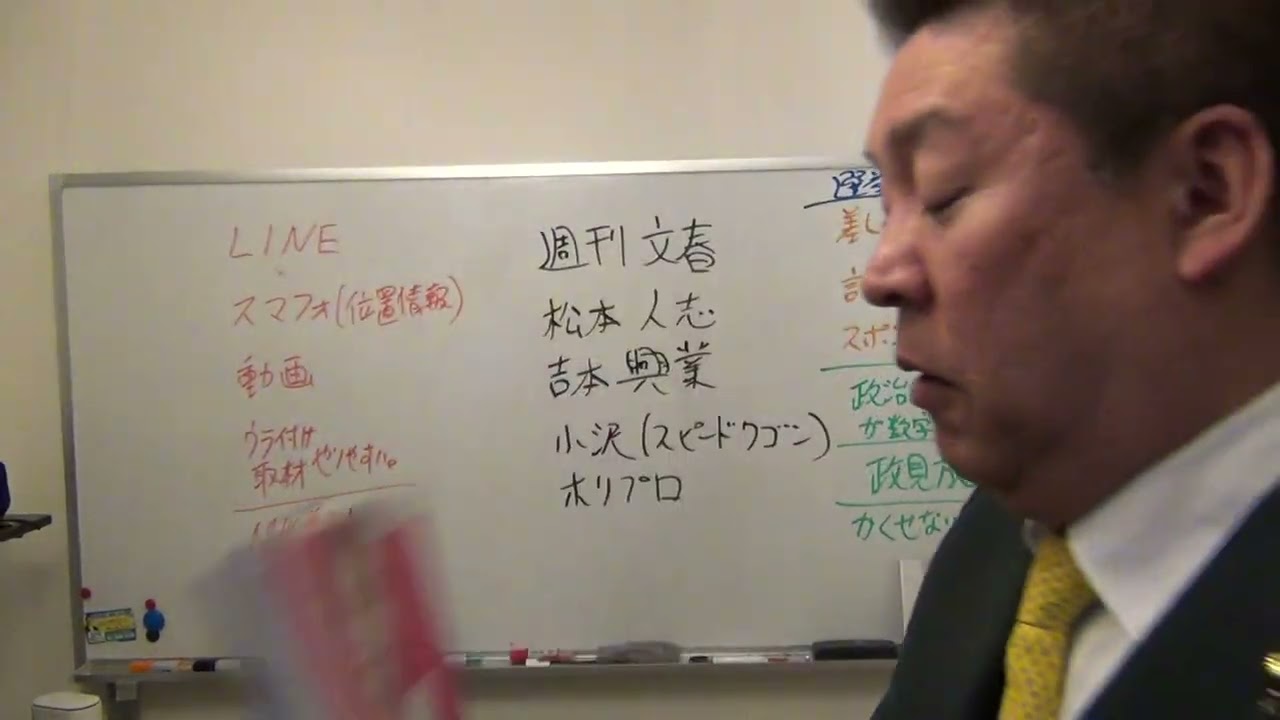 LINE
スマフォ(位置情報)
動画
ウライ付け
取材やりやすい。
週刊文春
松本人志
吉本興業
小沢(スピードワゴン)
ホリプロ
差し
スポン
政治
が数字
政見放
かくせない